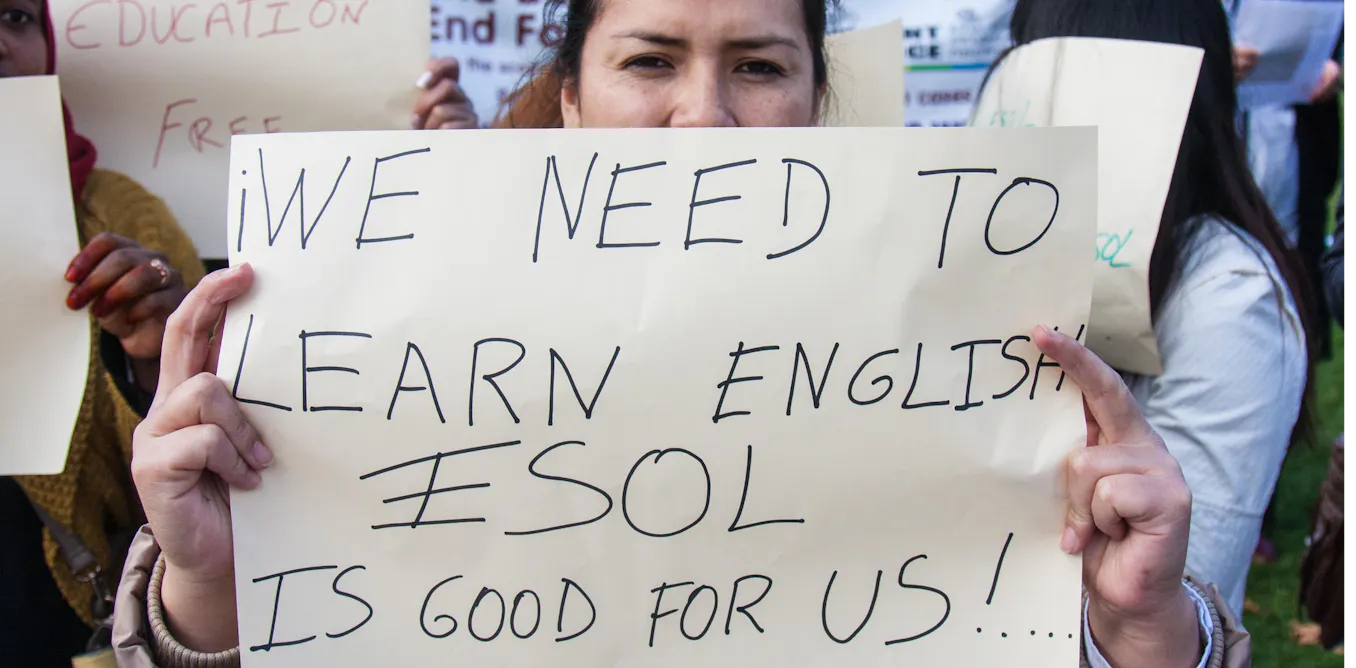 EDUCATION
FREE
End Fo
¡WE NEED TO
LEARN ENGLISH
ESOL
IS GOOD FOR US!.....